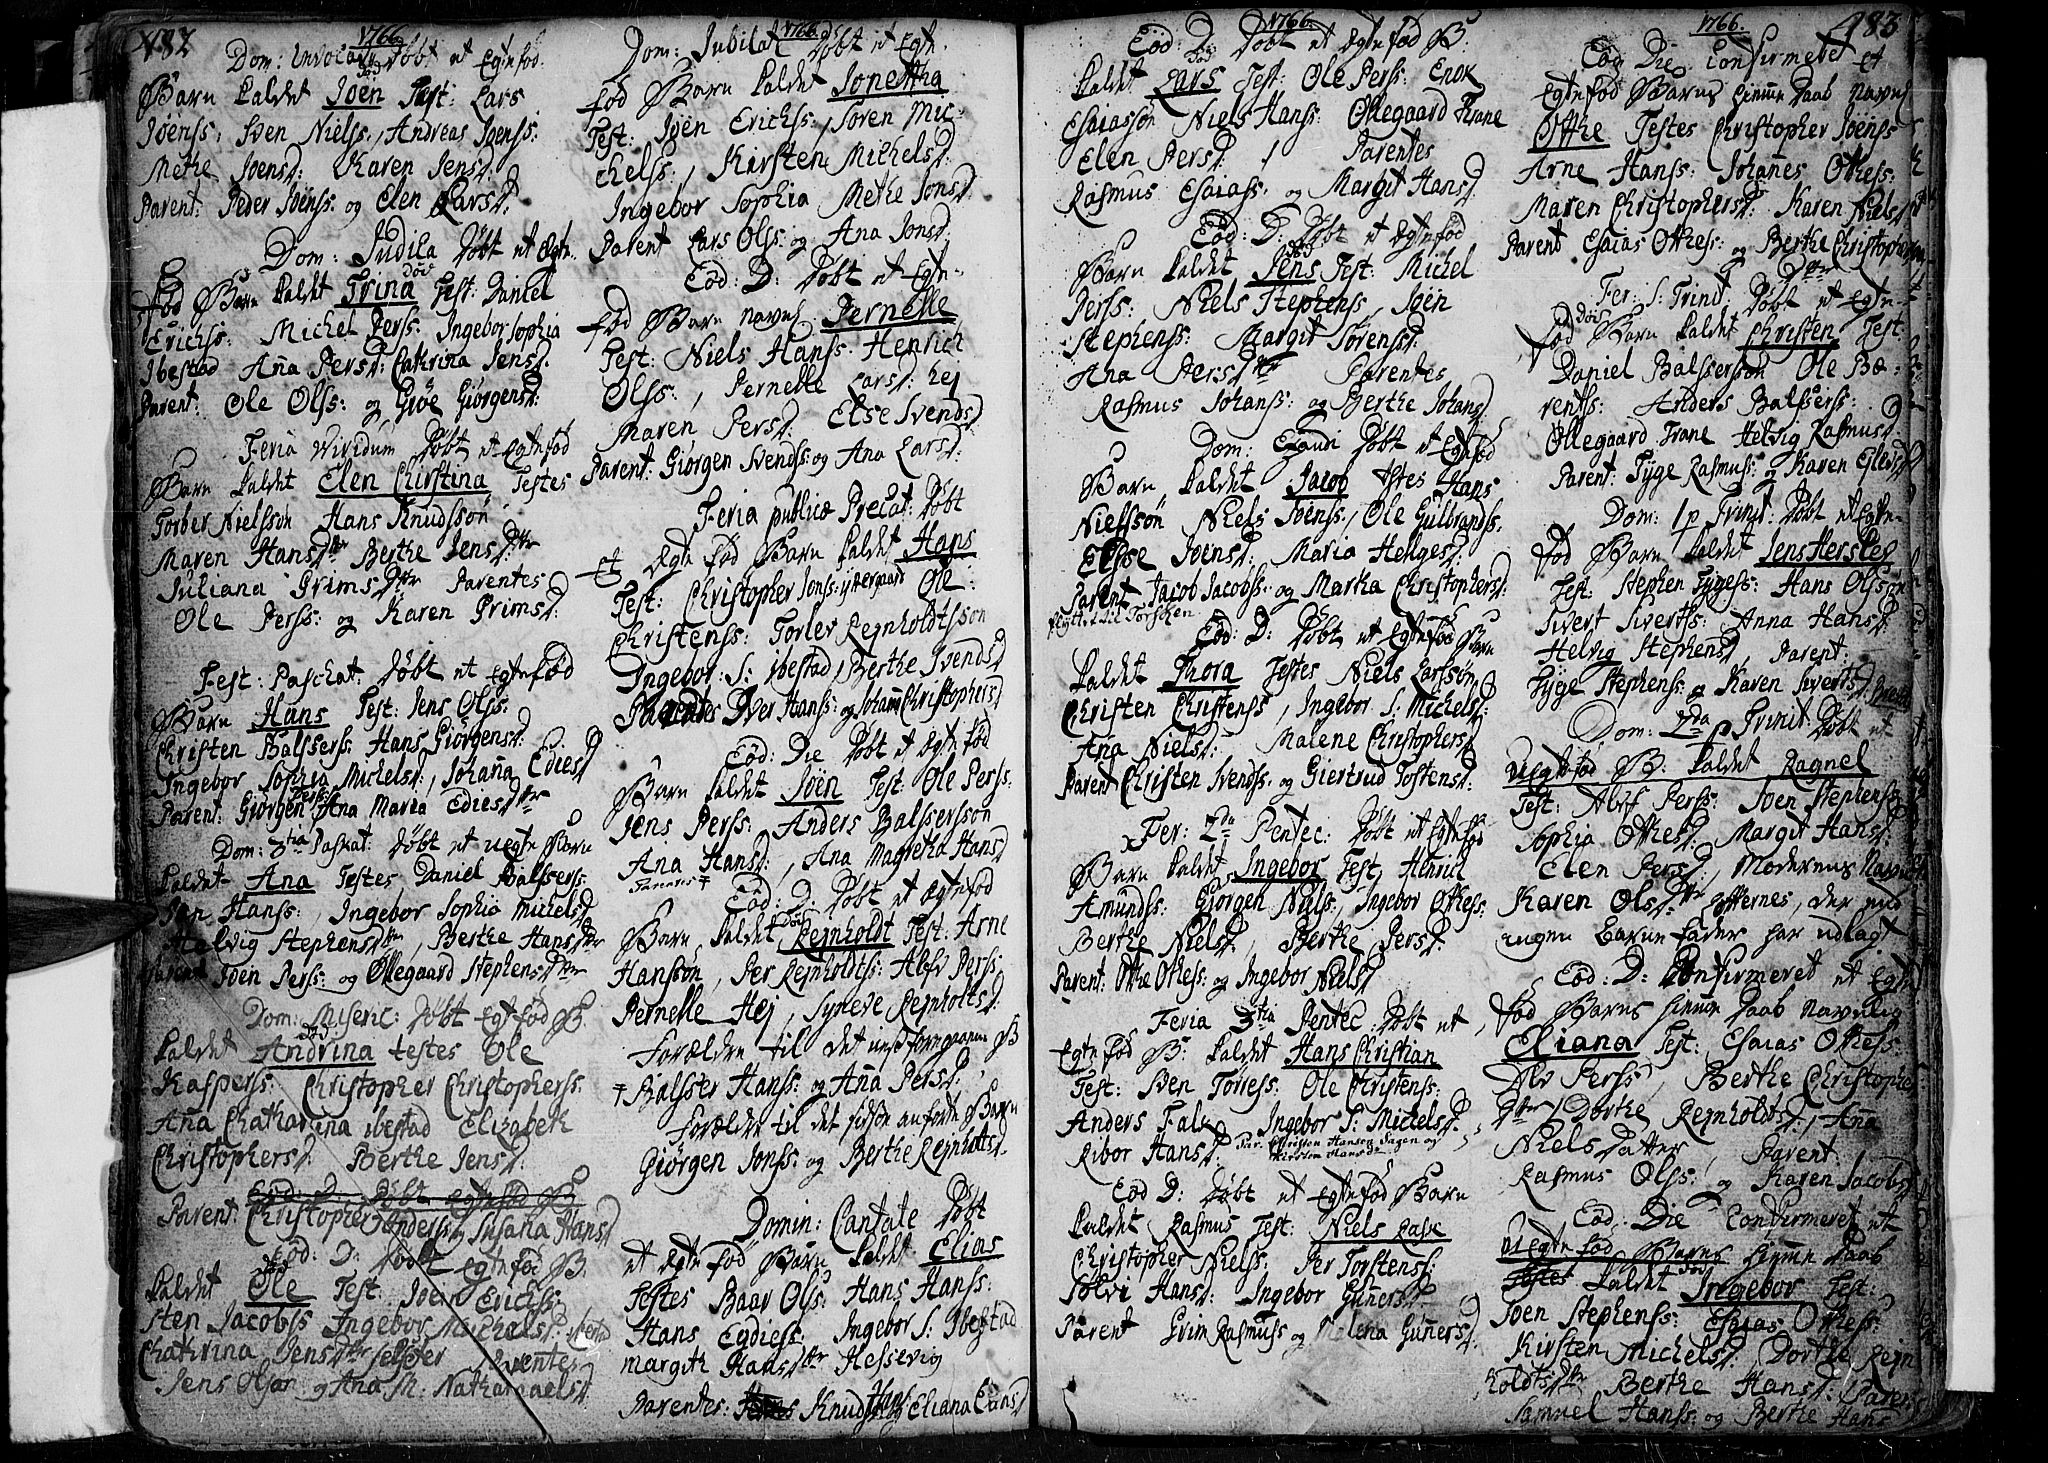 482
1766
Dom: Invocav: Døbt et Egtefød
død
Barn kaldet Joen Test: Lars
Joenss: Sven Nielss:, Andreas Joenss:
Methe Joensd: Karen Jensd:
Parent: Peder Joenss: og Elen Larsd:
Dom: Judica Døbt et Egte-
død
fød Barn kaldet Trina Test: Daniel
Erichss: Michel Perss: Ingebor Sophia
Ibestad Ana Persd: Cathrina Jensd:
Parent: Ole Olss: og Gjøe Giørgensd:
Feria Viridum Døbt et Egtefød
Barn kaldet Elen Christina Testes
Torber Nielssøn Hans Knudssøn
Maren Hansdtr Berthe Jensdtr
Juliana Grimsdtr Parentes
Ole Perss: og Karen Grimsd:
Fest: Paschat: Døbt et Egtefød
Barn Hans Test: Jens Olss:
Christen Balssers: Hans Giørgensd:
Ingebor Sophia Michelsd:, Johana Ediesd
Parent: Giørgen Perss: Ana Maria Ediesdtr
Dom: 3tia Paskat: Døbt et uegte Barn
kaldet Ana Testes Daniel Balsserss:
Jen Hanss:, Ingebor Sophia Michelsd
Helvig Stephensdtr, Berthe Hansdtr
Parent Joen Perss: og Ollegaard Stephensdtr
Dom: Miseric: Døbt Egtefød B.
død
kaldet Andrina testes Ole
Kasperss: Christopher Christopherss:
Ana Chatharina Ibestad Elizabeth
Christophersd: Berthe Jensd:
Eod: D: Døbt Egtefød B
Parent: Christopher Anderss: og Susana Hansd
Eod: D: Døbt Egtefød B.
død
kaldet Ole Test: Joen Erichss:
sten Jacobss Ingebor Michelsd:
Chathrina Jensdtr
Jens Olsøn og Ana M: Nathanaelsd
1766
Dom: Jubilate Døbt et Egte-
fød Barn kaldet Jonetha
Test: Joen Erichss:, Soren Mic-
chelss:, Kirsten Michelsd:
Ingebor Sophia Methe Jonsd:
Parent Lars Olss: og Ana Jonsd:
Eod: D: Døbt et Egte-
fød Barn navnl: Pernelle
Test: Niels Hanss: Henrich
Olss:, Pernelle Larsd: Hej
Maren Persd: Else Svendsd
Parent: Giørgen Svendss: og Ana Larsd:
Feria publicæ Precat: Døbt
et Egtefød Barn kaldet Hans
Test: Christopher Jonss: yttergaard Ole
Christenss: Torlev Rejnholdtssøn
Ingebor: S: Ibestad, Berthe Svendsd
Parentes Iver Hanss: og Johana Christophersd
Eod: Die Døbt et Egtefød
Barn kaldet Joen Test: Ole Perss:
Jens Perss: Anders Balsserssøn
Ana Hansd:, Ana Magretha Hansd
Parentes ‡
Eod: D: Døbt et Egtefød
død
Barn kaldet Rejnholdt Test: Arne
Hanssøn, Per Rejnholdtss: Alef Perss:
Pernelle Hej, Syneve Rejnholtsd:
Forældre til det næst foregaaen B
‡ Balsser Hanss: og Ana Persd:
Forældre til det sidste anførte Barn
Giørgen Jonss: og Berthe Rejnholtsd:
Domin: Cantate Døbt
et Egtefød Barn kaldet Elias
Testes Baar Olss: Hans Hanss:
Hans Egdiess: Ingebor S: Ibestad
margith Hansdtr Hessevig
Parentes: Hans Knudss: og Eliana Elias d
1766
Eod: D: Døbt et Egtefød B:
død
kaldet Lars Test: Ole Perss: Enok
Esaiassøn Niels Hanss: Ollegaard Krane
Elen Persd: Parentes
Rasmus Esaiass: og Margit Hansd
Eod: D: Døbt et Egtefød
død
Barn kaldet Jens Test: Michel
Perss: Niels Stephenss, Joen
Stephenss: Margit Sørensd:
Ana Persdtr Parentes
Rasmus Johanss: og Berthe Johansd
Dom: Exaudi Døbt et Egtefød
Barn kaldet Jacob Testes Hans
Nielssøn Niels Joenss:, Ole Gulbrandss.
Elsse Joensd: Maria Hellgesd:
Parent Jacob Jacobss: og Martha Christophersd:
flyttet til Torschen
Eod: D: Døbt et Egtefød Barn
kaldet Thora Testes Niels Larssøn
Christen Christenss, Ingebor S: Michelsd:
Ana Nielsd: Malene Christophersd
Parent Christen Svendss: og Giertrud Tostensd:
Fer: 2da Pentec: Døbt et Egtefød
Barn kaldet Ingebor Test: Henrich
Amundss: Giørgen Nielss:, Ingebor Othess:
Berthe Nielsd: Berthe Persd:
Parent: Othe Othess: og Ingebor Nielsd
Feria 3tia Pentec: Døbt et
Egtefød B: kaldet Hans Christian
Test: Sven Torress: Ole Christenss:
Anders Falk Ingebor S: Michelsd:
Ribor Hansd: Par: Christen Hansen Sagen og
Kirsten Hansd
Eod D: Døbt et Egtefød Barn
kaldet Rasmus Test: Niels Rask
Christopher Nielss: Per Torstenss:
Solvi Hansd: Ingebor Gunersd:
Parent Grim Rasmuss og Malena Gunersd
1766
483
Eod: Die Confirmeret et
Egtefød Barns hjemme Daab navnl:
Othe Testes Christopher Joenss
Arne Hanss: Johanes Othess:
Maren Christophersd: Karen Nielsd
Parent Esaias Othess: og Berthe Christophersdtr
Fer: S: Trinit: Døbt et Egte-
død
fød Barn kaldet Christen Test:
Daniel Balsserssøn Ole Bæ-
rentss: Anders Balsserss:
Ollegaard Krane Helvig Rasmusd:
Parent: Tyge Rasmuss: og Karen
Dom: 1 p Trinit: Døbt et Egte-
fød Barn kaldet Jens Hersleb
Test: Stephen Tygess: Hans Olssøn
Sivert Sivertss: Anna Hansd:
Helvig Stephensd, Parent:
Tyge Stephenss: og Karen Sivertsd
Dom: 2da p Trinit: Døbt et
uegtefød B: kaldet Ragnel
Test: Alef Perss: Joen Stephenss
Sophia Othesd: Margit Hansd:
Elen Persd, Moderens Navn
Karen Olsdtr Gofternes, der end
ingen Barne fader har udlagt
Eod: D: Confirmeret et Egte
fød Barns hjemme Daab navnlig
Eliana Test: Esaias Othess:
Alv Perss, Berthe Christophers
dtr, Dorthe Rejnholdtsd:, Ana
Niels datter, Parent:
Rasmus Olss: og Karen Jacobsd
Eod: Die Confirmeret et
uegtefød Barns hjemme Daab
død
Testes kaldet Ingebor Test:
Joen Stephenss: Esaias Othess:
Kirsten Michelsd: Dorthe Rejn
holdtsdtr Berthe Hansd: Paren:
Samuel Hanss: og Berthe Hans